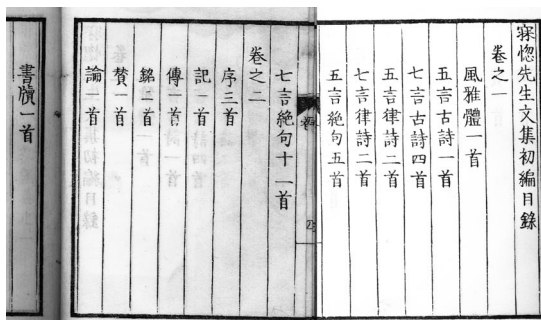 寐惚先生文集初編目錄
卷之一
風雅體一首
五言古詩一首
七言古詩四首
五言律詩二首
七言律詩二首
五言絶句五首
七言絶句十一首
卷之二
序三首
記一首
傳一首
銘一首
贊一首
論一首
書牘一首